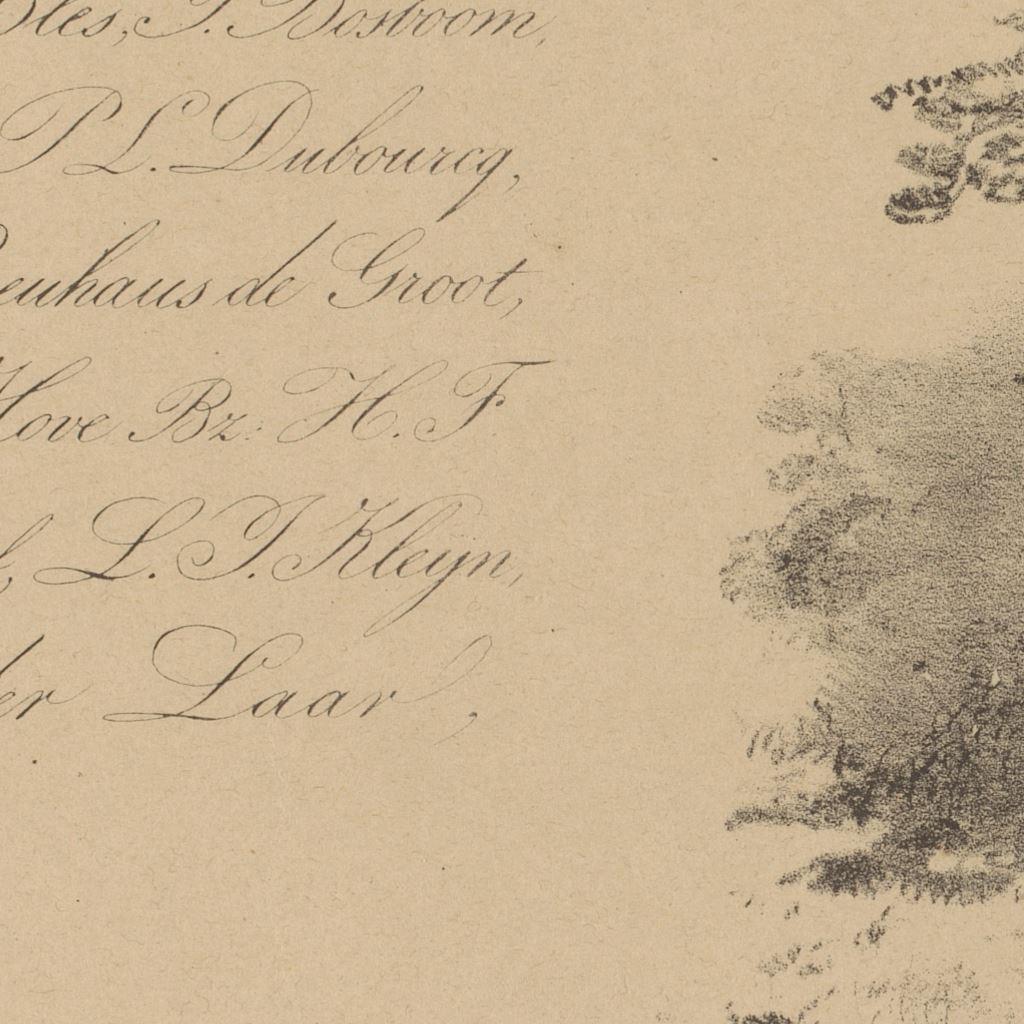 Bles, J. Bosboom,
P L. Dubourcq,
euhaus de Groot,
Hove Bz: H. F.
L. J. Kleijn,
der Laar,